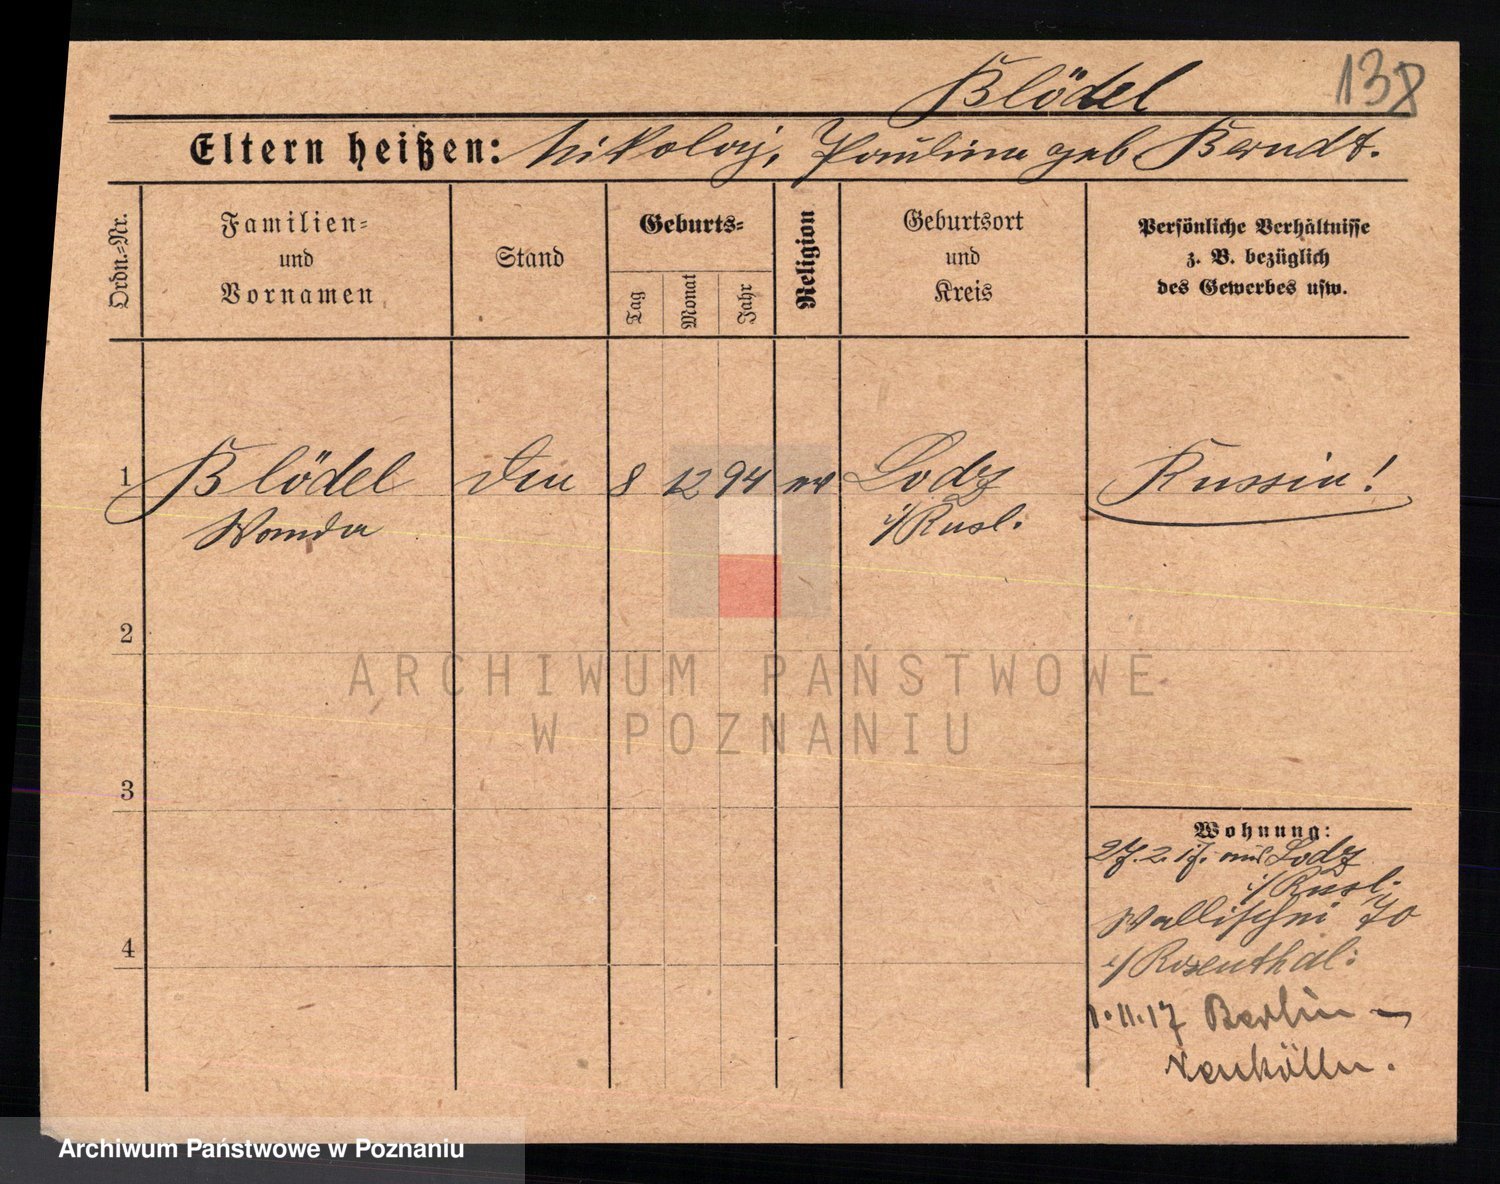 Blödel
138
Eltern heißen: Nikolaj, Pauline geb Berndt.
Ordn.-Nr.
Familien-
und
Vornamen
Stand
Geburts-
Tag
Monat
Jahr
Religion
Geburtsort
und
Kreis
Persönliche Verhältnisse
z. B. bezüglich
des Gewerbes usw.
1 Blödel 8 12 94 ev Lodz Russin!
Wanda i/Rusl.
2
3
4
Wohnung:
27.2.17. aus Lodz
i/Rusl.
Wallischei 70
b/Rosenthal:
1.11.17 Berlin –
Neukölln.
ARCHIWUM PAŃSTWOWE
W POZNANIU
Archiwum Państwowe w Poznaniu